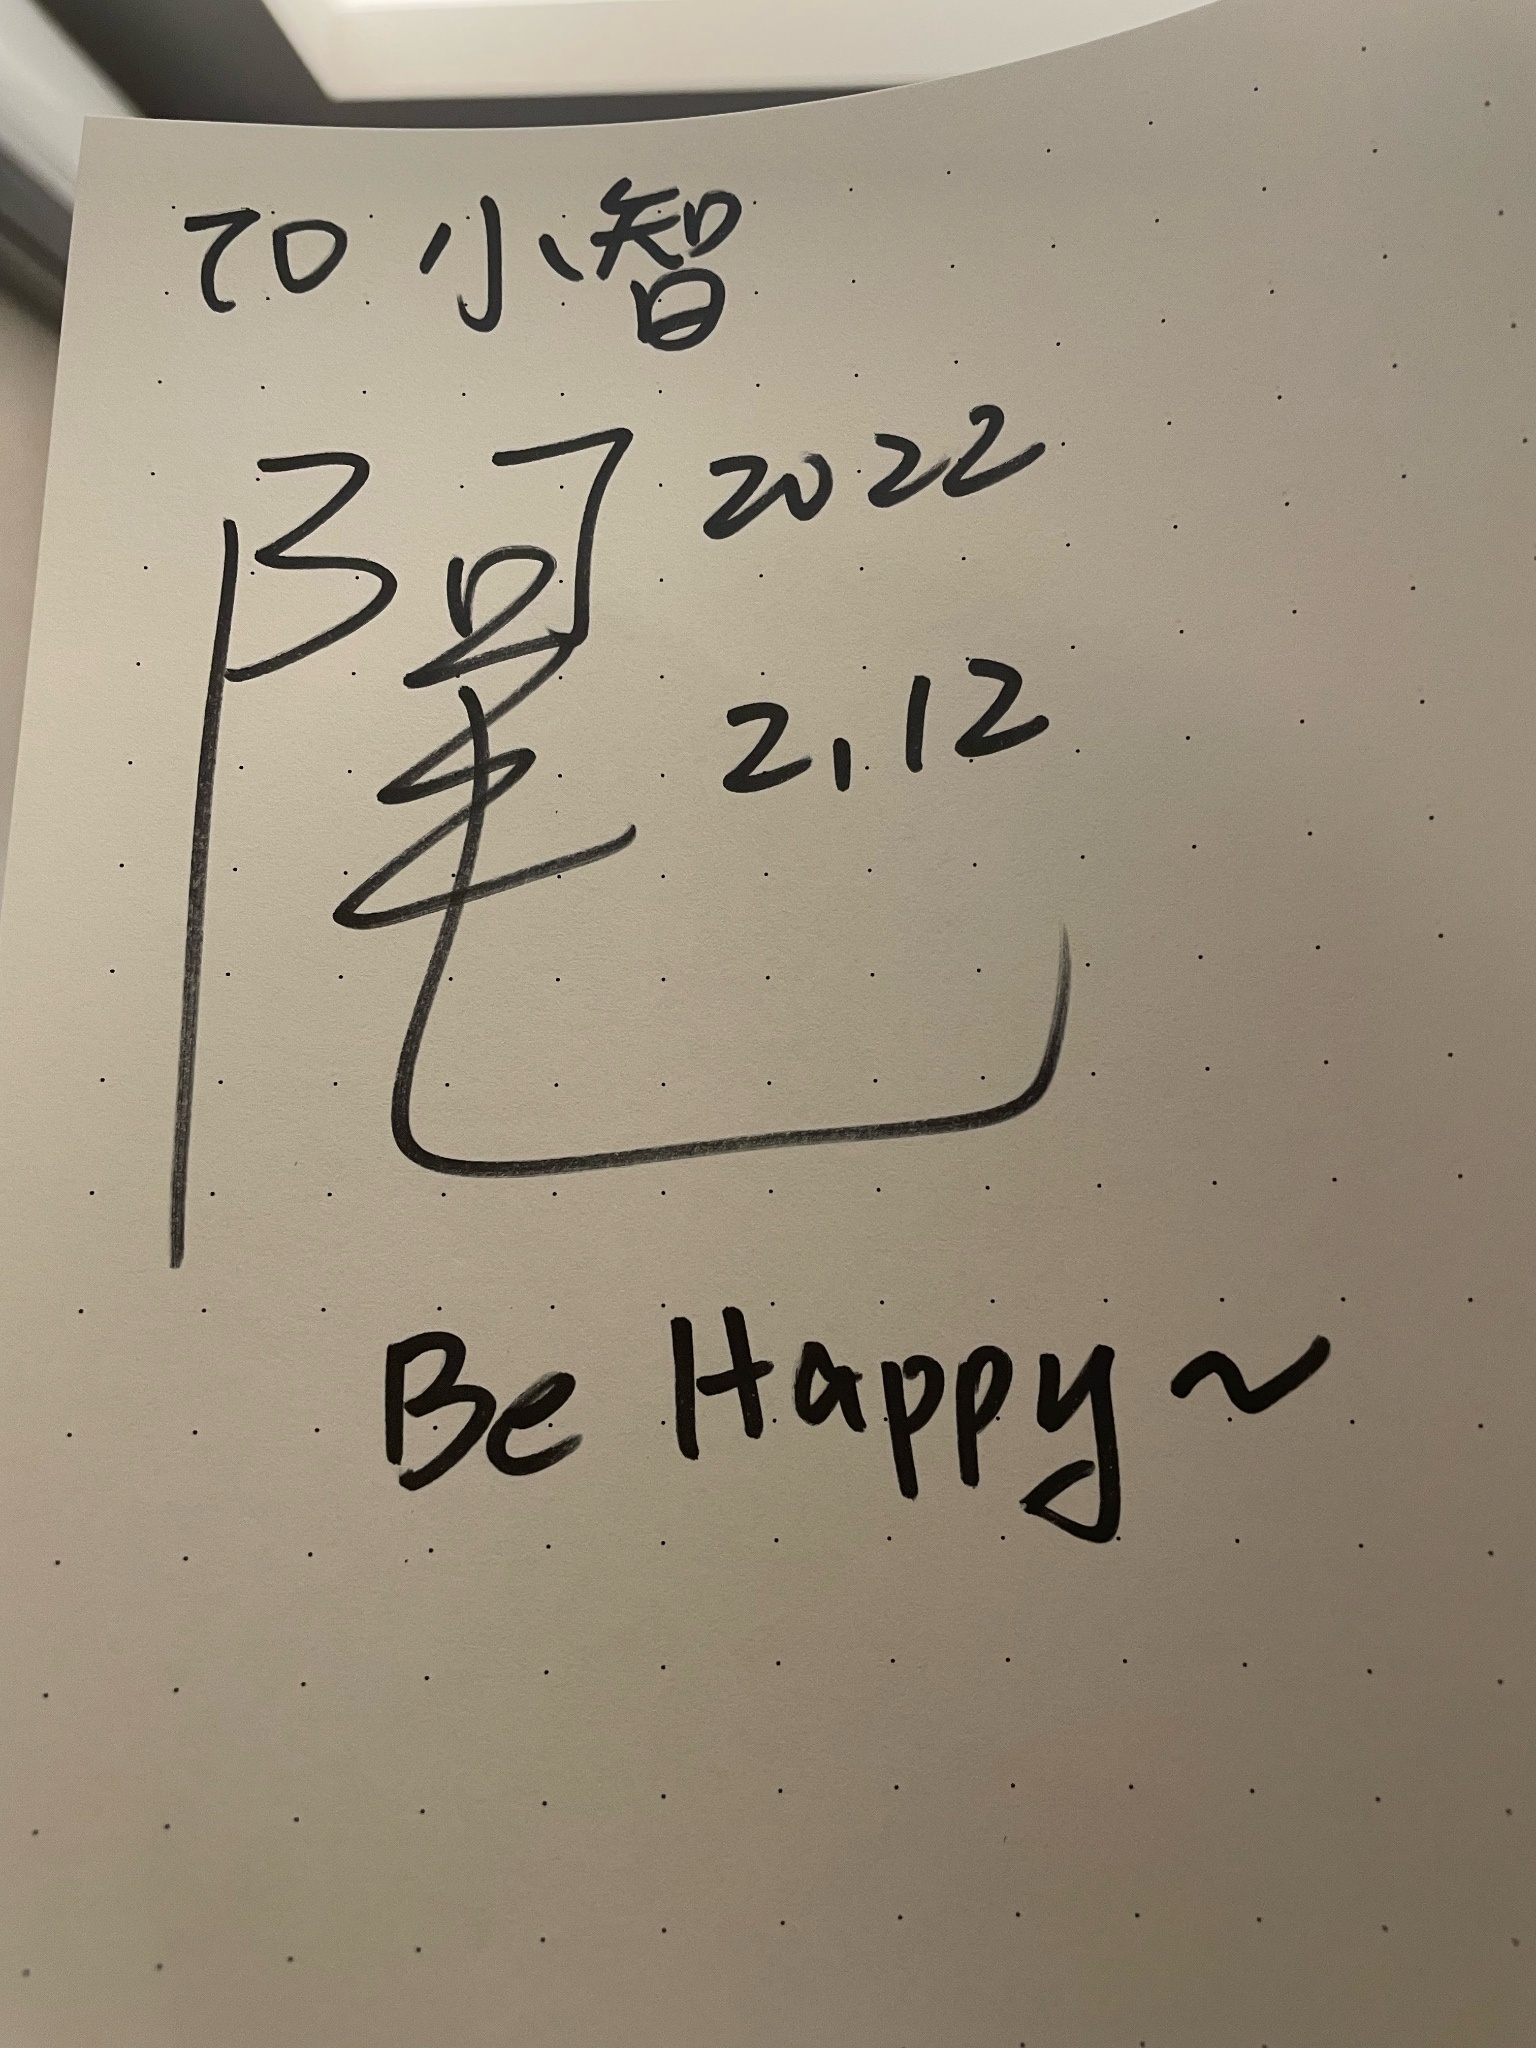 TO 小智
2022
2.12
Be Happy~